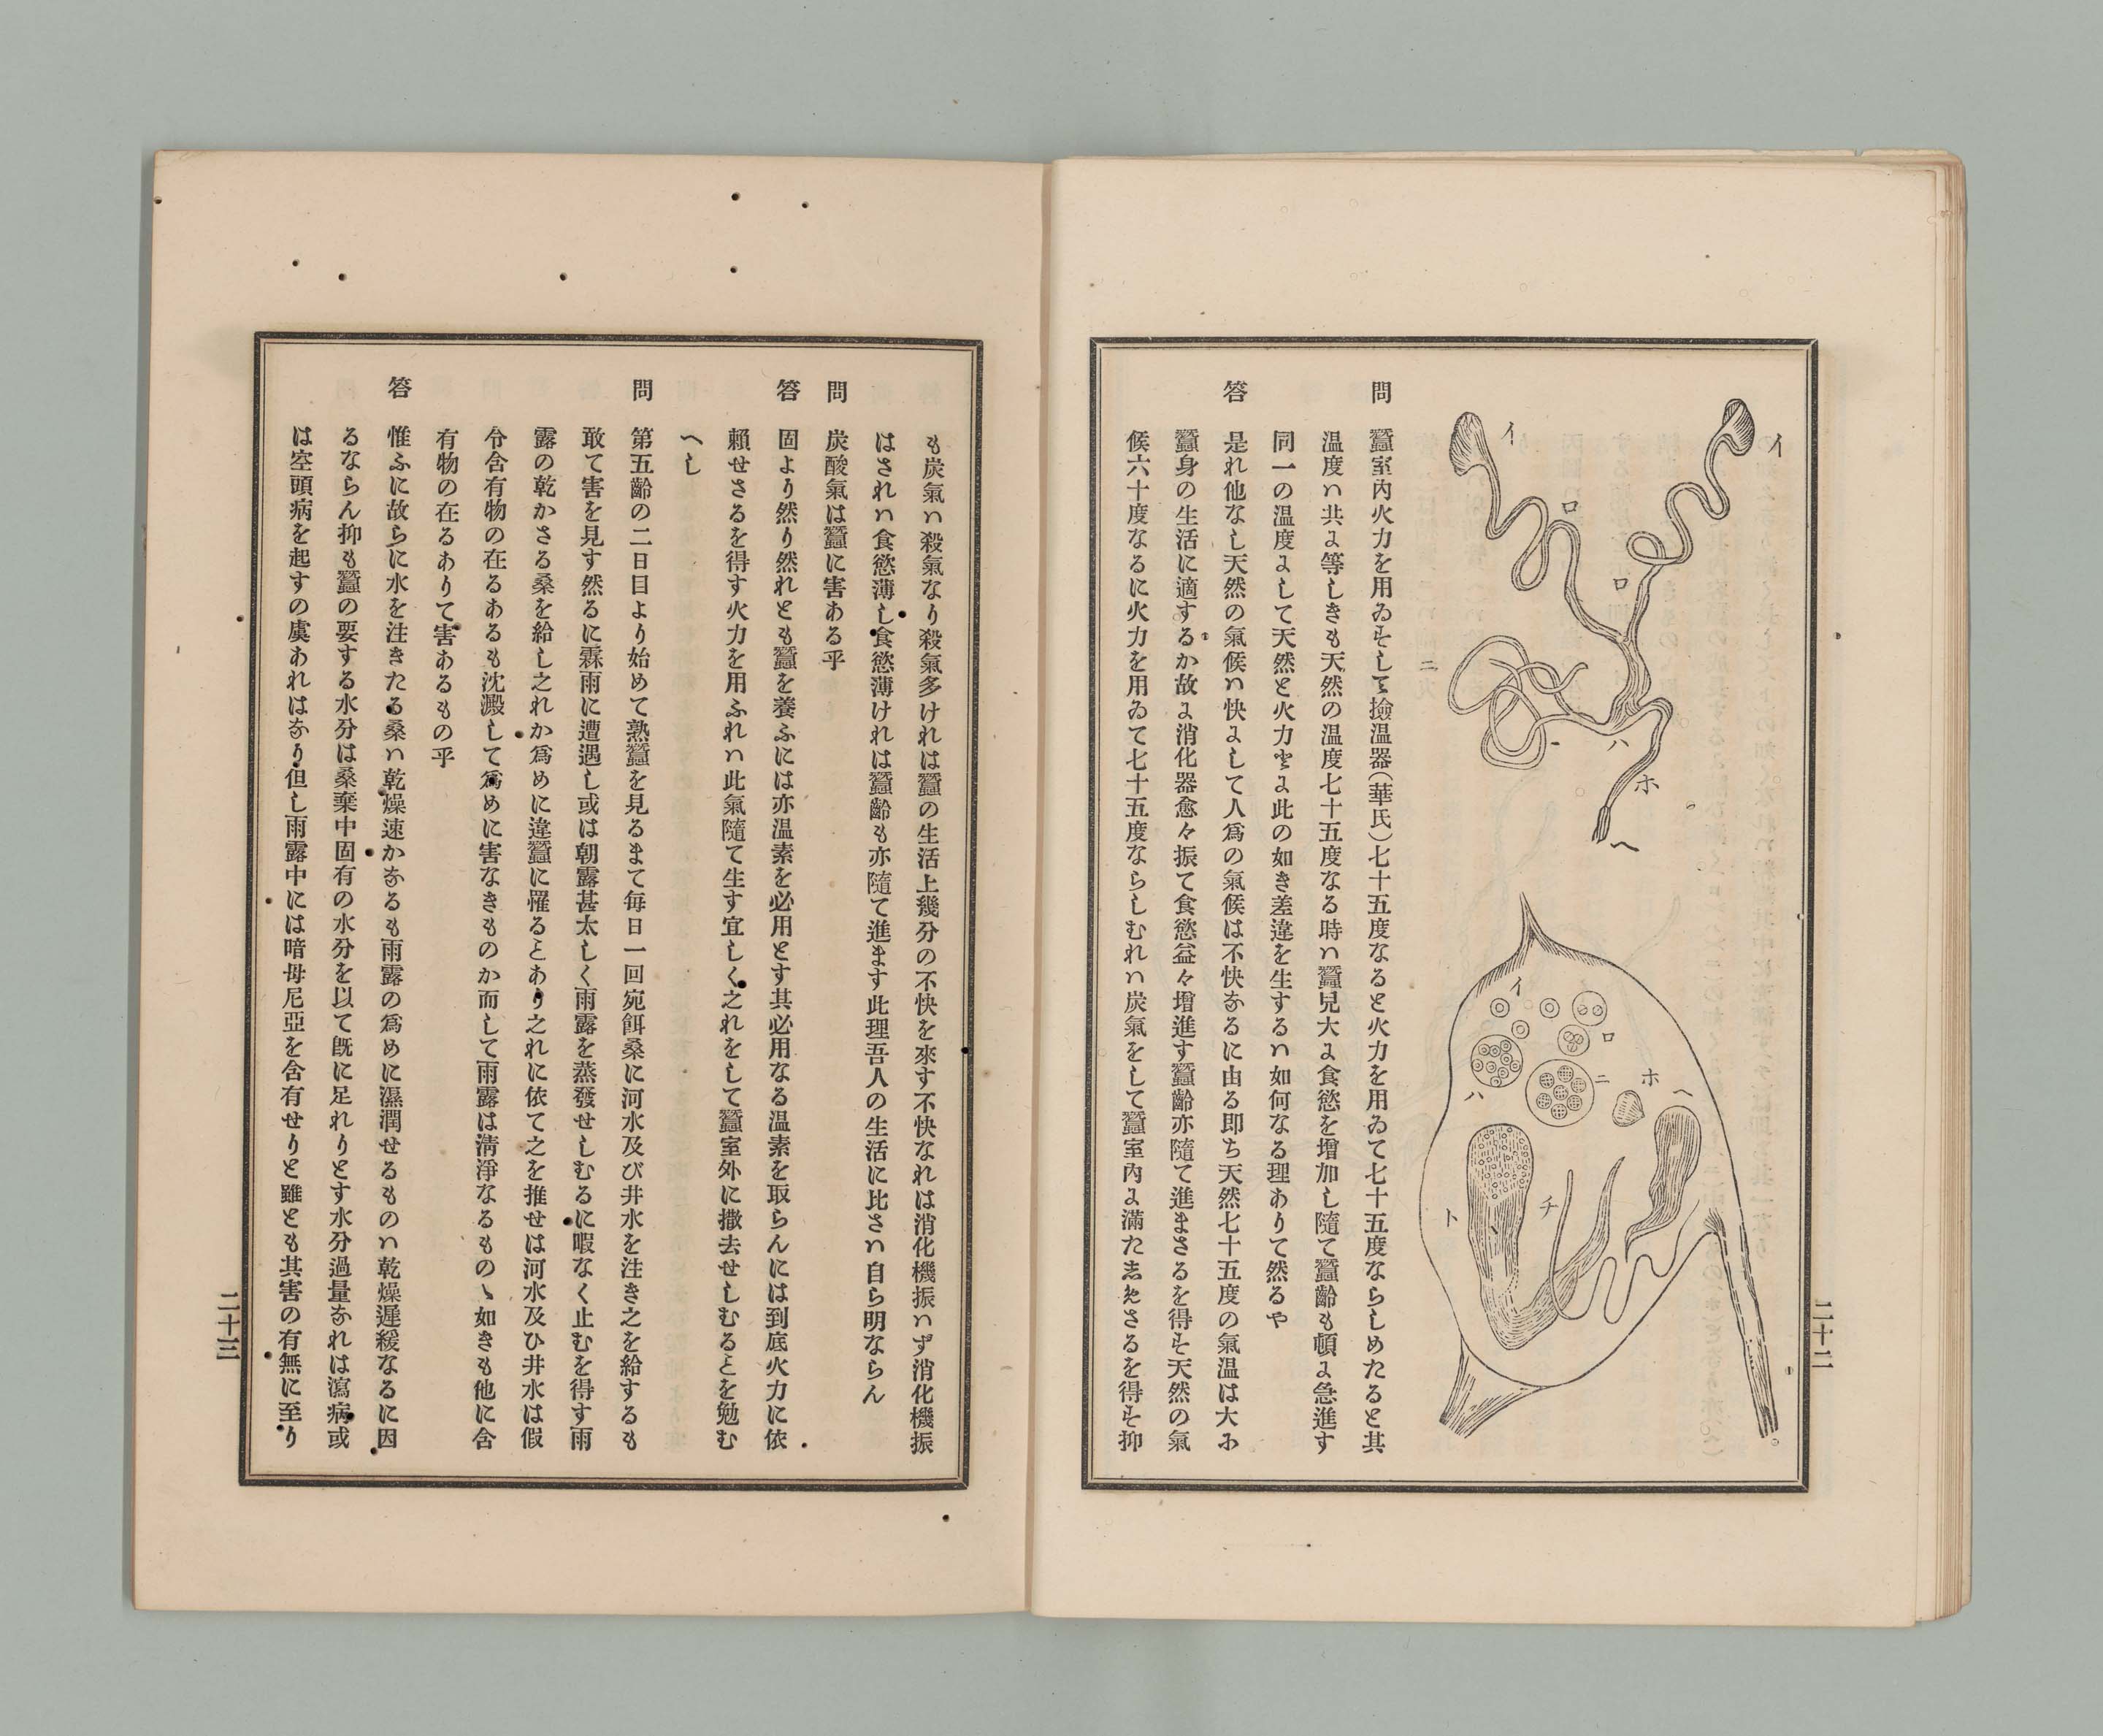 イ
イ
ロ
ロ
ニ
ハ
ホ
ヘ
イ
ロ
ハ
ニ
ホ
ヘ
ト
チ
問 蠶室内火力を用ゐすして撿温器(華氏)七十五度なると火力を用ゐて七十五度ならしめたると其
温度ハ共に等しきも天然の温度七十五度なる時ハ蠶兒大に食慾を增加し隨て蠶齡も頓に急進す
同一の温度にして天然と火力とに此の如き差違を生するハ如何なる理ありて然るや
答 是れ他なし天然の氣候ハ快にして人爲の氣候は不快なるに由る即ち天然七十五度の氣温は大に
蠶身の生活に適するか故に消化器愈々振て食慾益々增進す蠶齡亦隨て進まさるを得す天然の氣
候六十度なるに火力を用ゐて七十五度ならしむれハ炭氣をして蠶室内に滿たしめさるを得す抑
二十二
も炭氣ハ殺氣なり殺氣多けれは蠶の生活上幾分の不快を來す不快なれは消化機振ハず消化機振
はされハ食慾薄し食慾薄けれは蠶齡も亦隨て進ます此理吾人の生活に比さハ自ら明ならん
問 炭酸氣は蠶に害ある乎
答 固より然り然れとも蠶を養ふには亦温素を必用とす其必用なる温素を取らんには到底火力に依
賴せさるを得す火力を用ふれハ此氣隨て生す宜しく之れをして蠶室外に撒去せしむるとを勉む
へし
問 第五齡の二日目より始めて熟蠶を見るまて每日一回宛餌桑に河水及び井水を注き之を給するも
敢て害を見す然るに霖雨に遭遇し或は朝露甚太しく雨露を蒸發せしむるに暇なく止むを得す雨
露の乾かさる桑を給し之れか爲めに違蠶に罹るとあり之れに依て之を推せは河水及ひ井水は假
令含有物の在るあるも沈澱して爲めに害なきものか而して雨露は淸淨なるものゝ如きも他に含
有物の在るありて害あるもの乎
答 惟ふに故らに水を注きたる桑ハ乾燥速かなるも雨露の爲めに濕潤せるものハ乾燥遲緩なるに因
るならん抑も蠶の要する水分は桑葉中固有の水分を以て既に足れりとす水分過量なれは瀉病或
は空頭病を起すの虞あれはなり但し雨露中には暗母尼亞を含有せりと雖とも其害の有無に至り
二十三